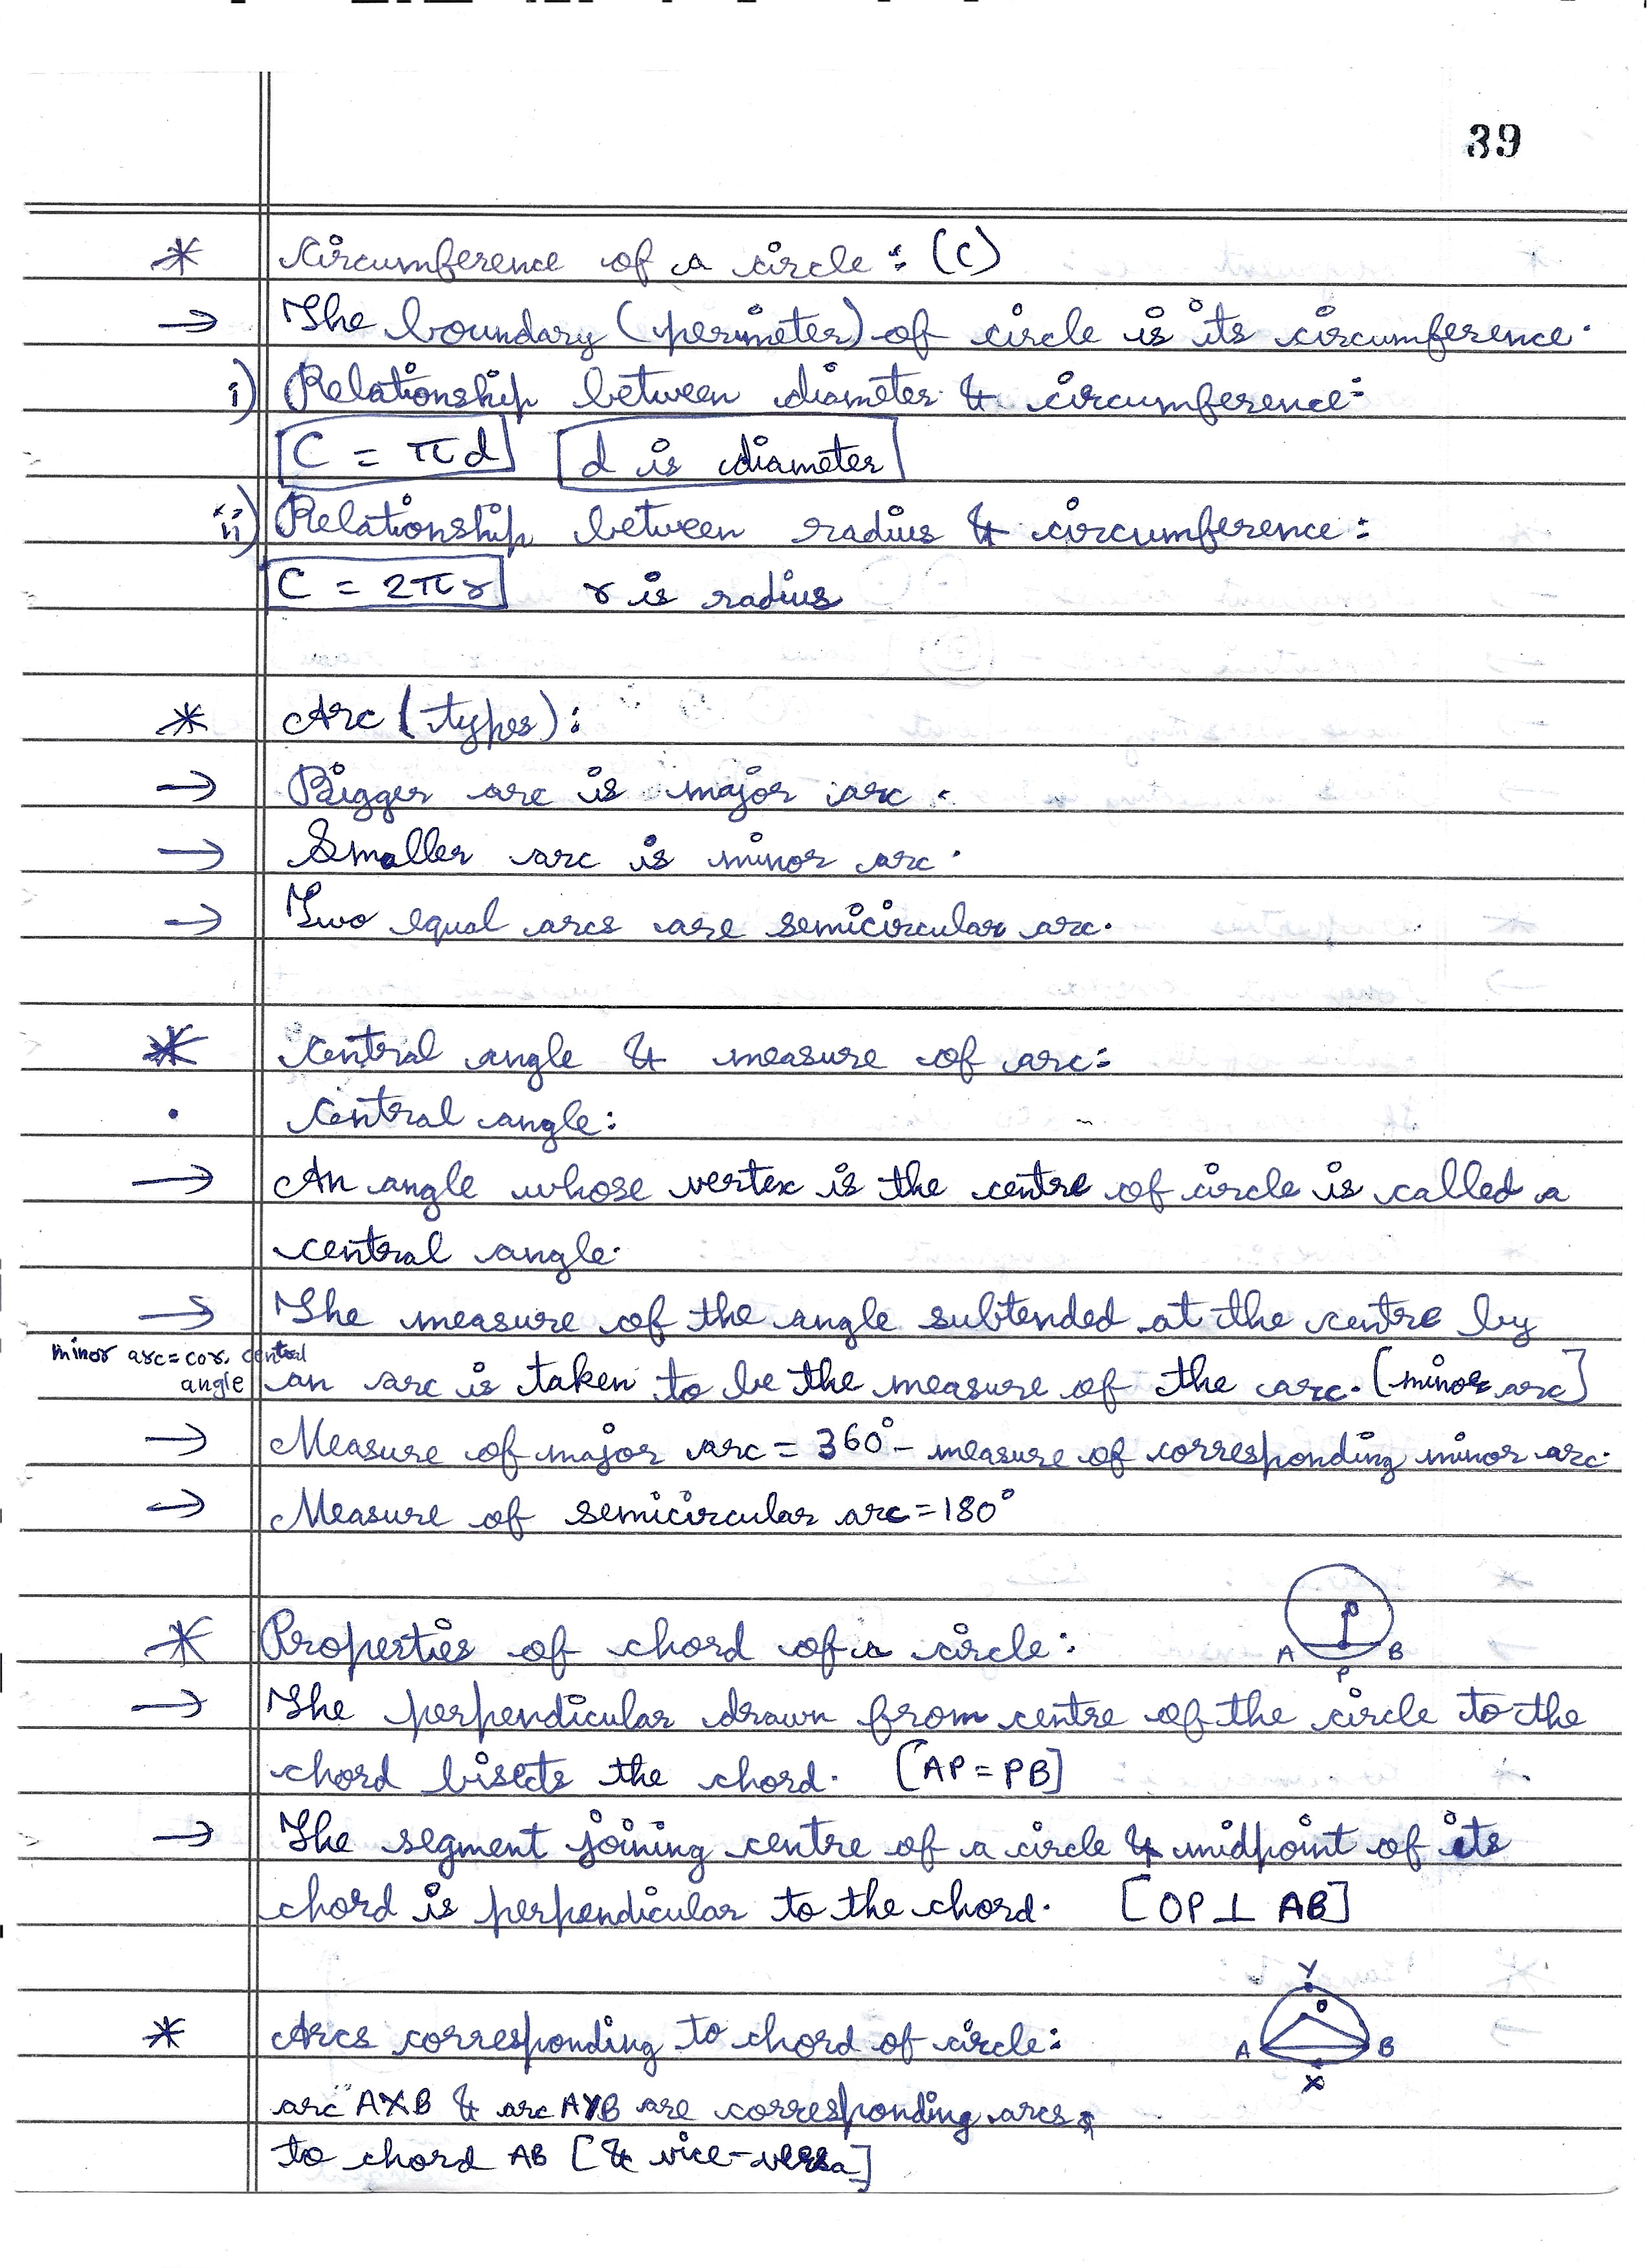 39
* Circumference of a circle: (C)
→ The boundary (perimeter) of circle is its circumference.
i) Relationship between diameter & circumference:
C = πd d is diameter
ii) Relationship between radius & circumference:
C = 2πr r is radius
* Arc (types):
→ Bigger arc is major arc.
→ Smaller arc is minor arc.
→ Two equal arcs are semicircular arc.
* Central angle & measure of arc:
• Central angle:
→ An angle whose vertex is the centre of circle is called a
central angle.
→ The measure of the angle subtended at the centre by
minor arc = cor. central
angle an arc is taken to be the measure of the arc. [minor arc]
→ Measure of major arc = 360° - measure of corresponding minor arc.
→ Measure of semicircular arc = 180°
O
* Properties of chord of a circle:
A B
P
→ The perpendicular drawn from centre of the circle to the
chord bisects the chord. [AP = PB]
→ The segment joining centre of a circle & midpoint of its
chord is perpendicular to the chord. [OP ⊥ AB]
Y
O
* Arcs corresponding to chord of circle:
A B
X
arc AXB & arc AYB are corresponding arcs
to chord AB [& vice-versa]